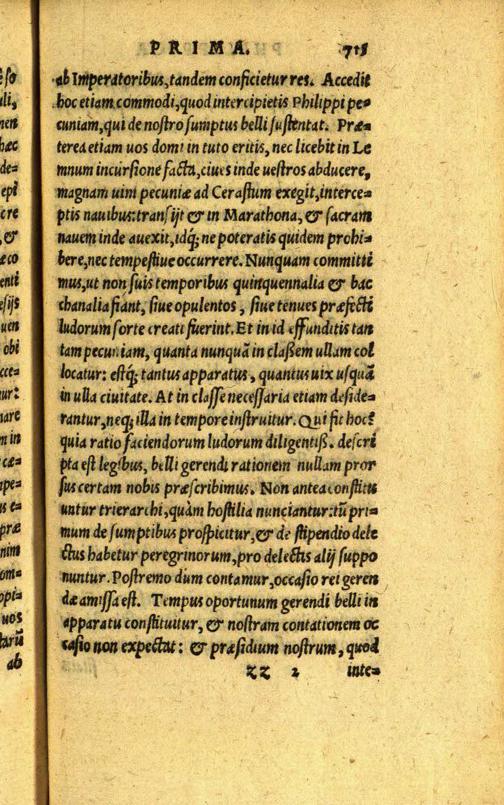 PRIMA. 715
ab Imperatoribus, tandem conficietur res. Accedit
hoc etiam commodi, quod intercipietis Philippi pe=
cuniam, qui de nostro sumptus belli sustentat. Præ=
terea etiam uos domi in tuto eritis, nec licebit in Le
mnum incursione facta, ciues inde uestros abducere,
magnam uim pecuniæ ad Cerastum exegit, interce=
ptis nauibus: transijt & in Marathona, & sacram
nauem inde auexit, idq; ne poteratis quidem prohi=
bere, nec tempestiue occurrere. Nunquam committi
mus, ut non suis temporibus quinquennalia & bac
chanalia fiant, siue opulentos, siue tenues præfecti
ludorum sorte creati fuerint. Et in id effunditis tan
tam pecuniam, quanta nunquã in claßem ullam col
locatur: estq; tantus apparatus, quantus uix usquã
in ulla ciuitate. At in classe necessaria etiam deside=
rantur, neq; illa in tempore instruitur. Qui fit hoc?
quia ratio faciendorum ludorum diligentiß. descri
pta est legibus, belli gerendi rationem nullam pror
sus certam nobis præscribimus. Non antea constitu
untur trierarchi, quàm hostilia nunciantur: tũ pri=
mum de sumptibus prospicitur, & de stipendio dele
ctus habetur peregrinorum, pro delectis alij suppo
nuntur. Postremo dum contamur, occasio rei geren
dæ amissa est. Tempus oportunum gerendi belli in
apparatu constituitur, & nostram contationem oc
casio non expectat: & præsidium nostrum, quod
ZZ 2 inte=